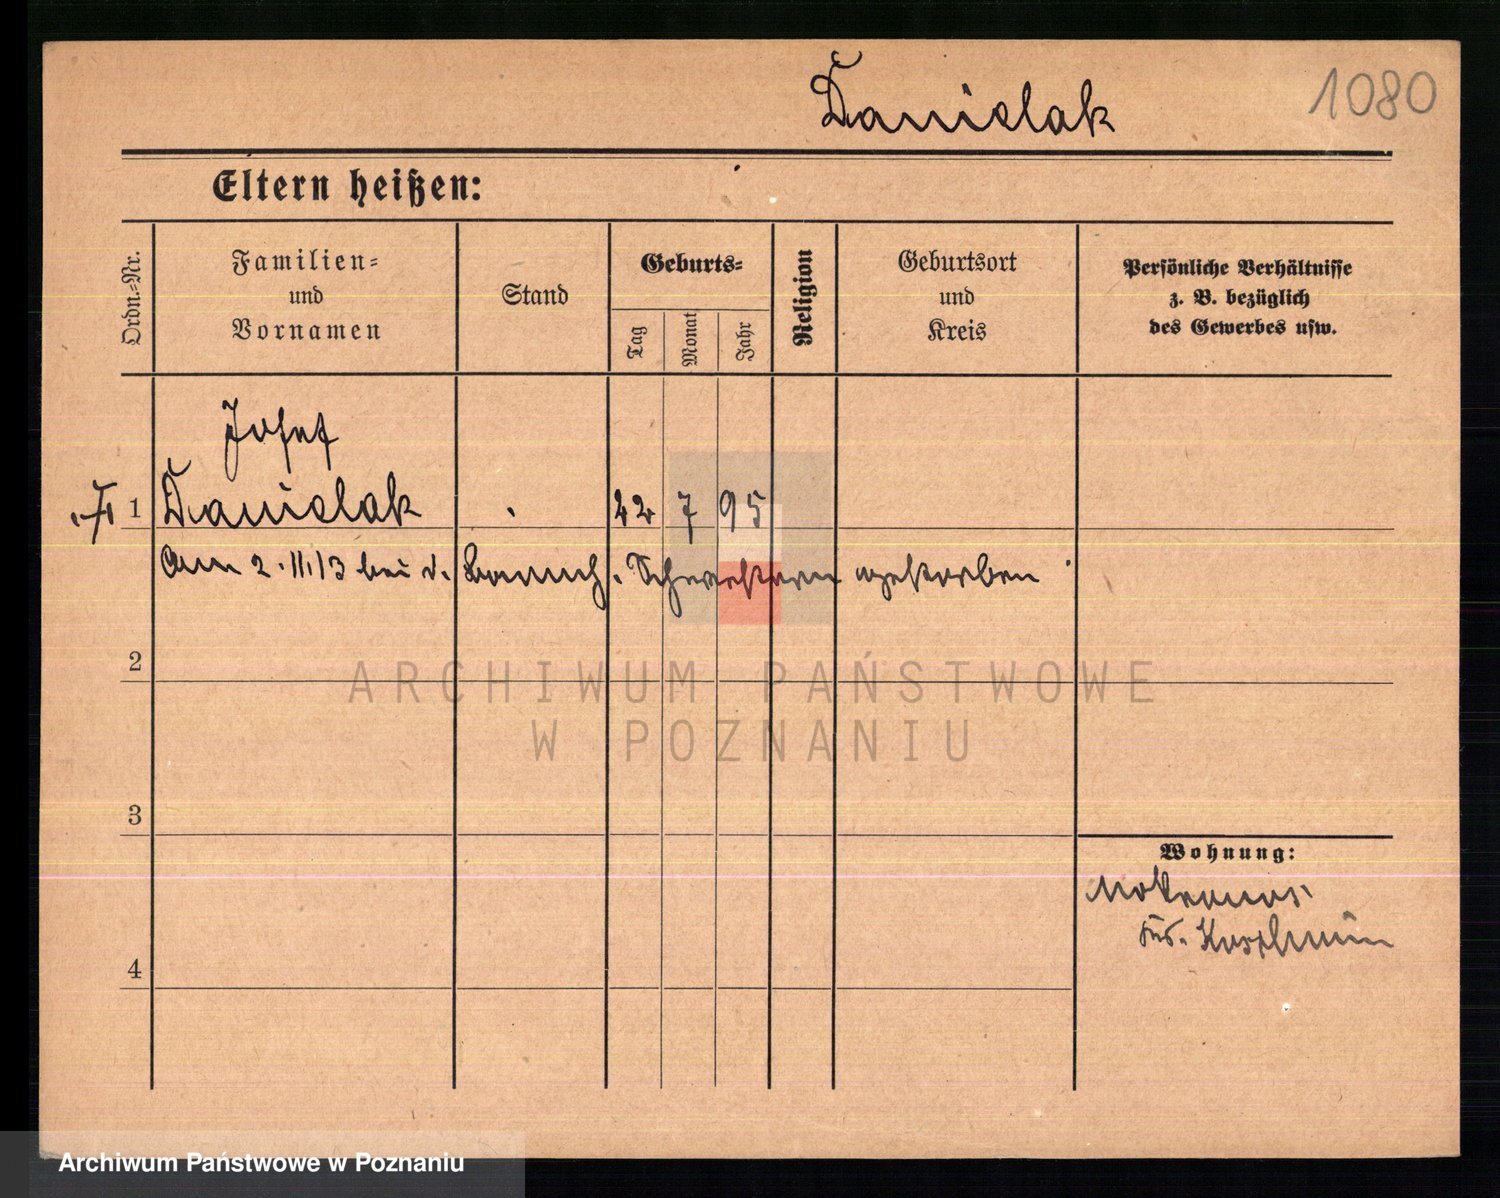 Danielak
1080
Eltern heißen:
Ordn.-Nr.
Familien-
und
Vornamen
Stand
Geburts-
Tag
Monat
Jahr
Religion
Geburtsort
und
Kreis
Persönliche Verhältnisse
z. B. bezüglich
des Gewerbes usw.
Josef
1 Danielak 7 95
Am 2.11.13 bei d. Barmh. Schwestern gestorben
2
ARCHIWUM PAŃSTWOWE
W POZNANIU
3
Wohnung:
Krs. Koschmin
4
Archiwum Państwowe w Poznaniu